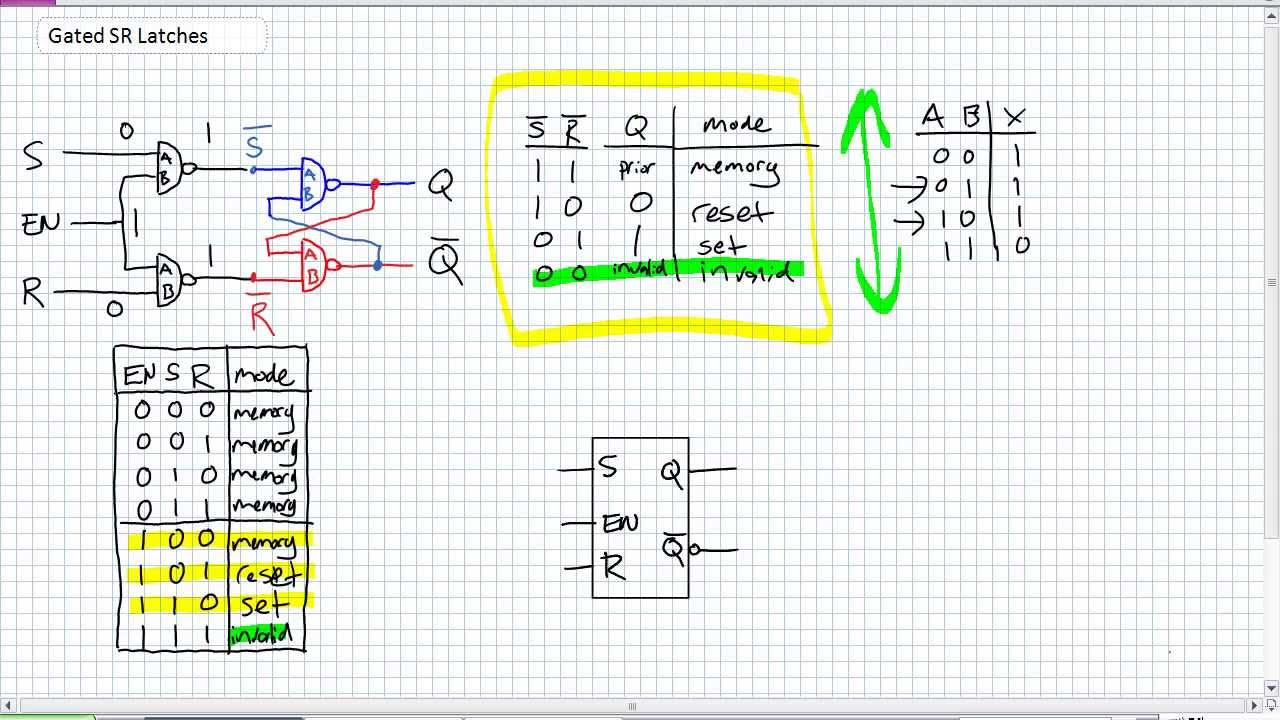 Gated SR Latches
0 1 S̅
S A B A B Q
EN 1
1 A B A B Q̅
R 0 R̅
S̅ R̅ Q mode
1 1 prior memory
1 0 0 reset
0 1 1 set
0 0 invalid invalid
A B X
0 0 1
0 1 1
1 0 1
1 1 0
EN S R mode
0 0 0 memory
0 0 1 memory
0 1 0 memory
0 1 1 memory
1 0 0 memory
1 0 1 reset
1 1 0 set
1 1 1 invalid
S Q
EN
R Q̅